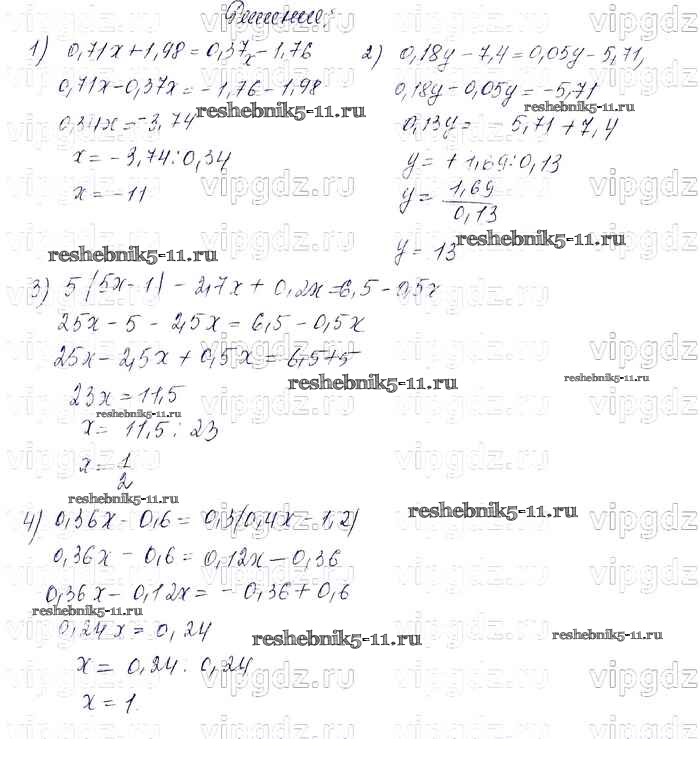 Решение:
1) 0,71x+1,98=0,37x-1,76
0,71x-0,37x=-1,76-1,98
0,34x=-3,74
x=-3,74:0,34
x=-11
2) 0,18y-7,4=0,05y-5,71,
0,18y-0,05y=-5,71
0,13y= -5,71+7,4
y=+1,69:0,13
y=1,69/0,13
y=13
3) 5(5x-1)-2,7x+0,2x=6,5-0,5x
25x-5-2,5x=6,5-0,5x
25x-2,5x+0,5x=6,5+5
23x=11,5
x=11,5:23
x=1/2
4) 0,36x-0,6=0,3(0,4x-1,2)
0,36x-0,6=0,12x-0,36
0,36x-0,12x=-0,36+0,6
0,24x=0,24
x=0,24:0,24
x=1.
reshebnik5-11.ru
vipgdz.ru